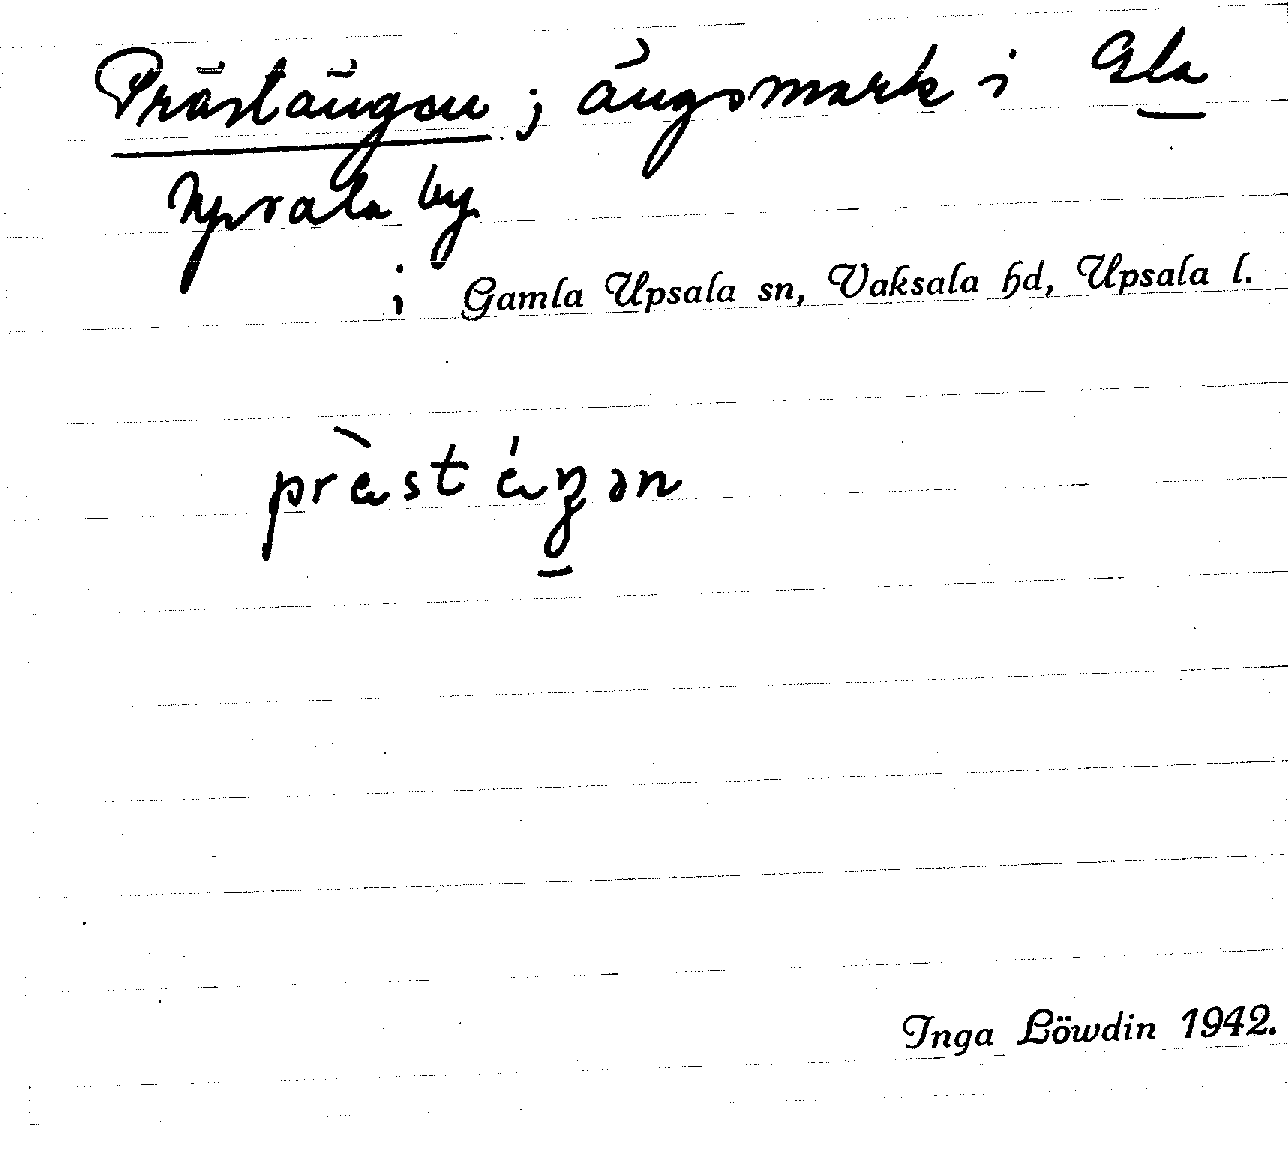 Prästängen; ängsmark i Gla
Upsala by
i Gamla Upsala sn, Vaksala hd, Upsala l.
Inga Löwdin 1942.